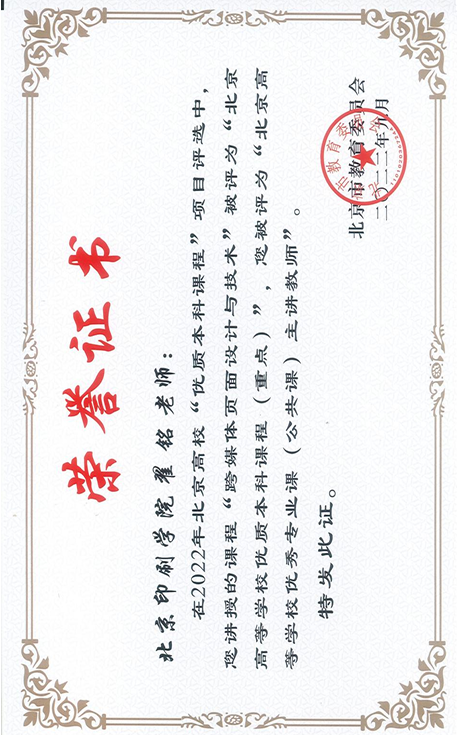 荣誉证书
北京印刷学院翟铭老师：
在2022年北京高校“优质本科课程”项目评选中，
您讲授的课程“跨媒体页面设计与技术”被评为“北京
高等学校优质本科课程（重点）”，您被评为“北京高
等学校优秀专业课（公共课）主讲教师”。
特发此证。
北京市教育委员会
二〇二二年九月